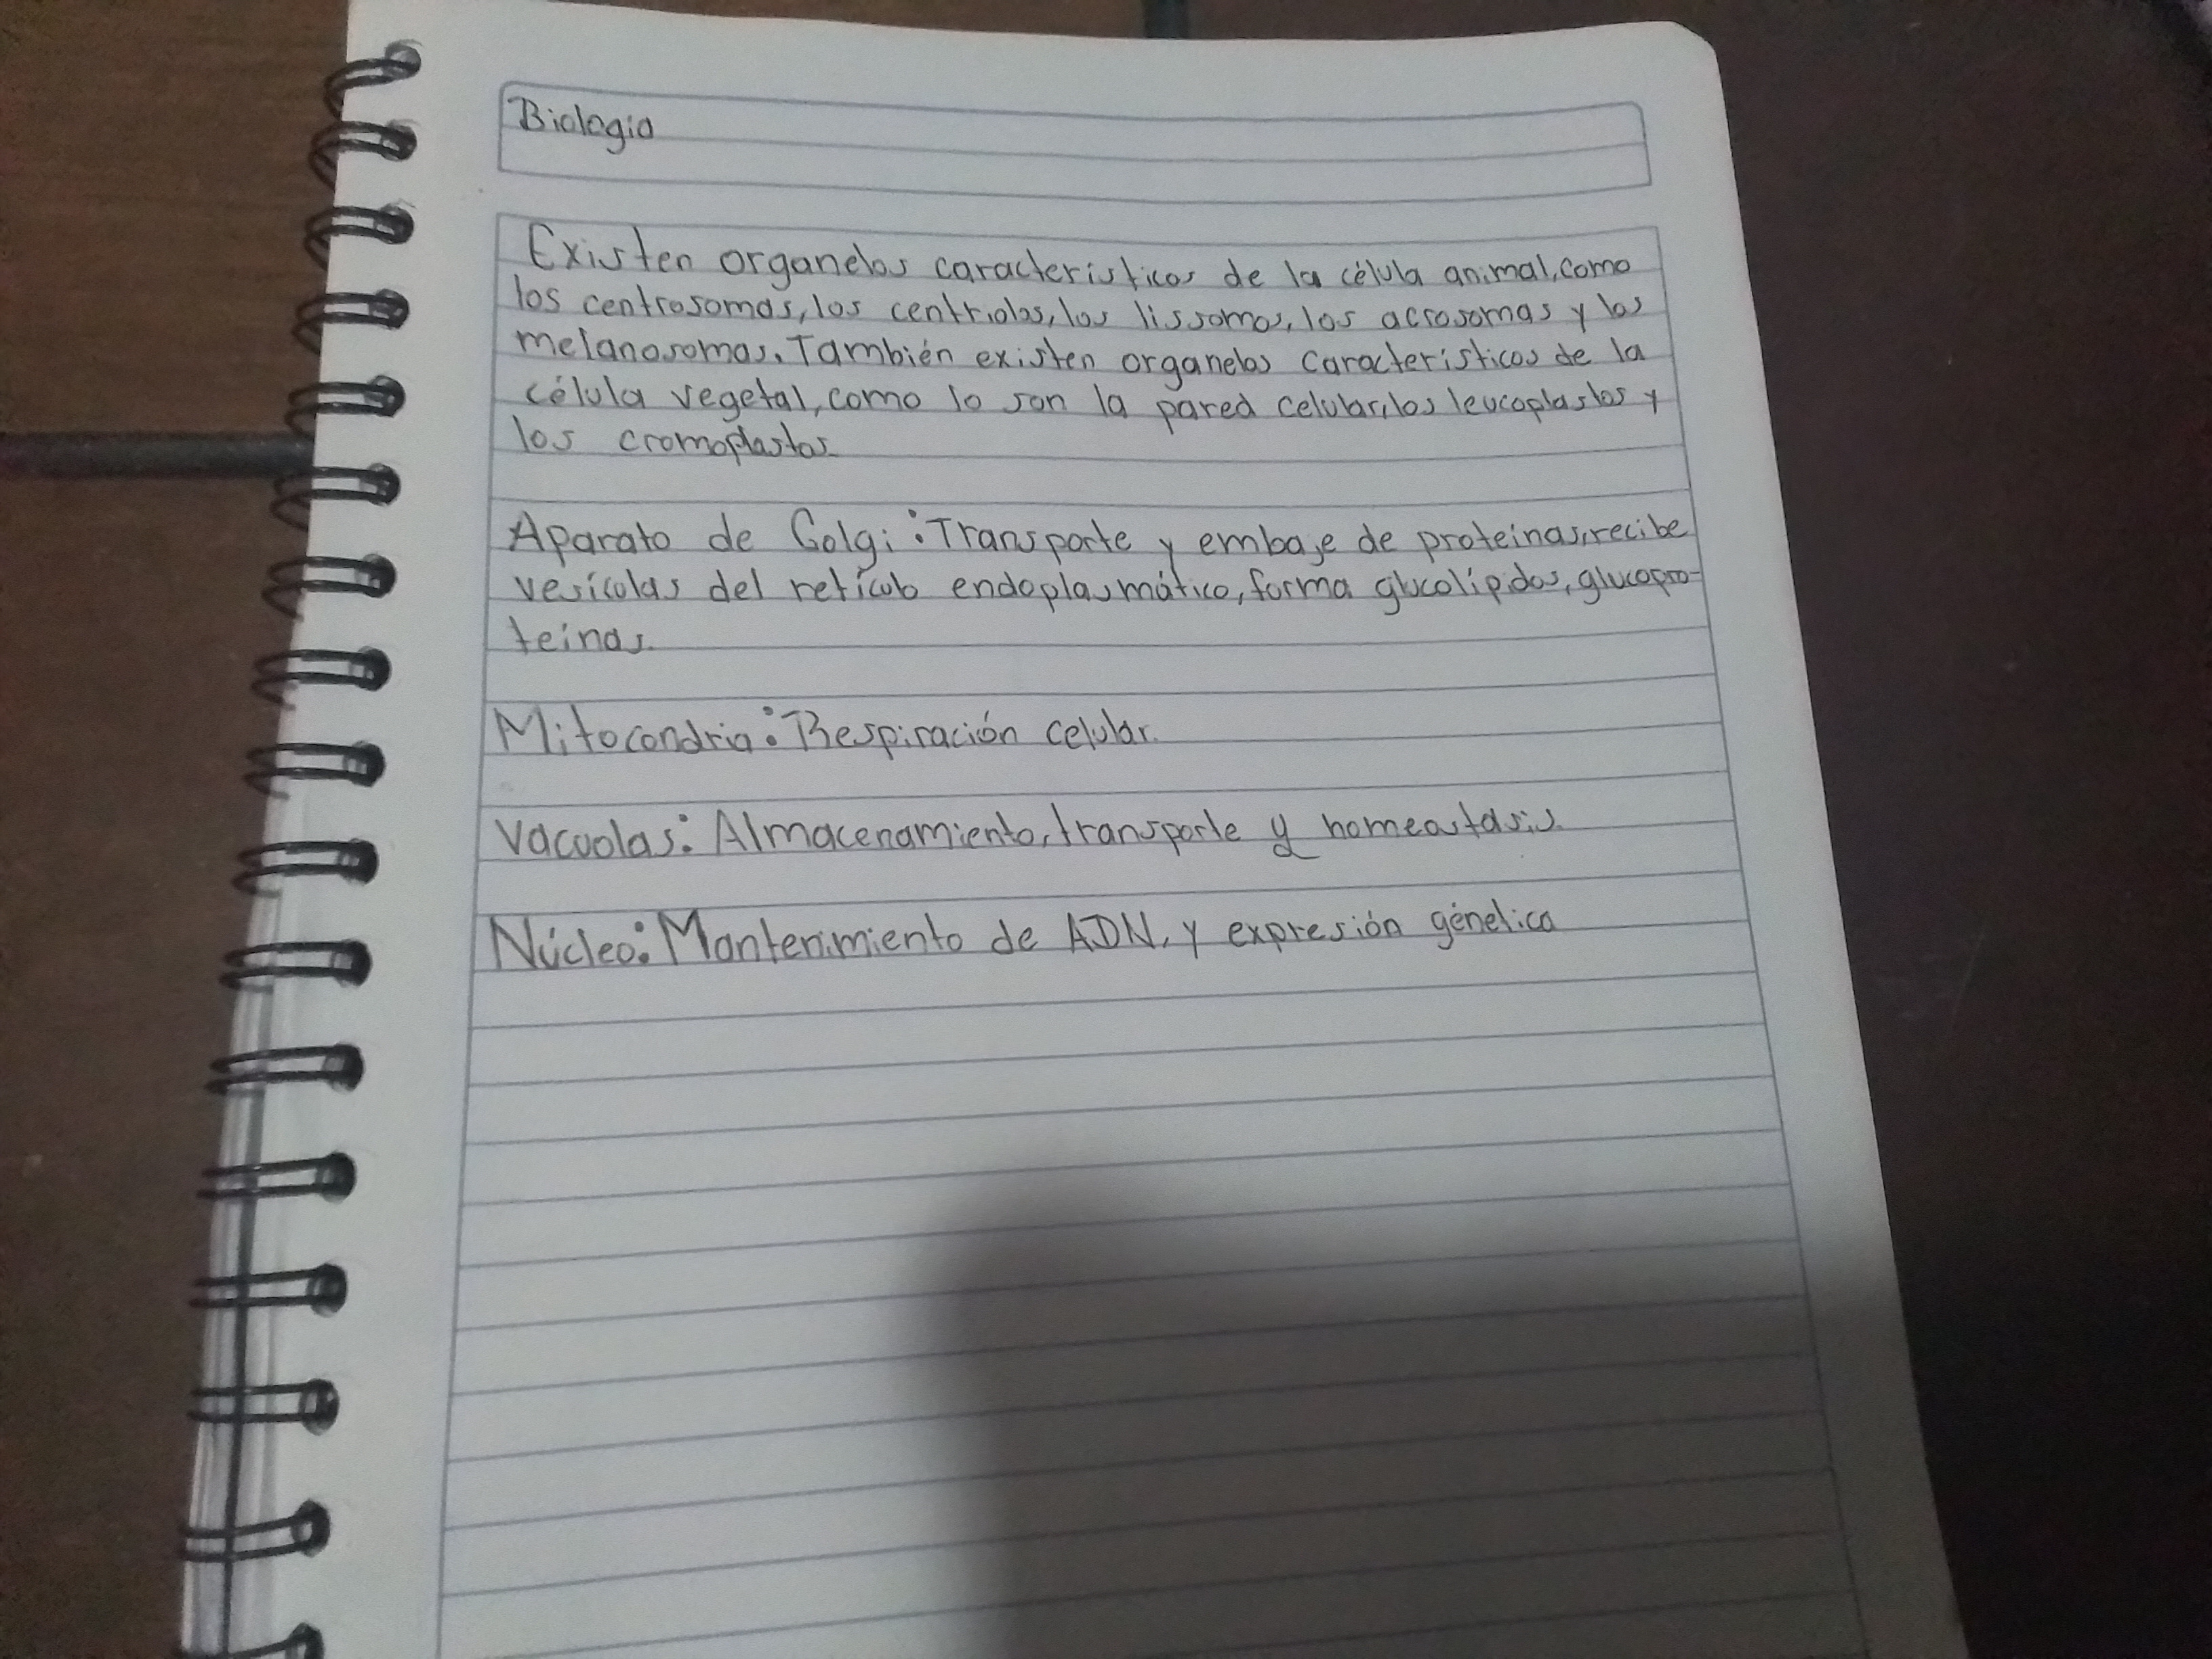 Biologia
Existen organelos caracteristicos de la célula animal, como
los centrosomas, los centriolos, los lissomas, los acrosomas y los
melanosomas. También existen organelos caracteristicos de la
célula vegetal, como lo son la pared celular, los leucoplastos y
los cromoplastos.
Aparato de Golgi: Transporte y embaje de proteinas, recibe
vesículas del retículo endoplasmático, forma glucolípidos, glucopro-
teinas.
Mitocondria: Respiración celular.
Vacuolas: Almacenamiento, transporte y homeostasis.
Núcleo: Mantenimiento de ADN, y expresión génetica